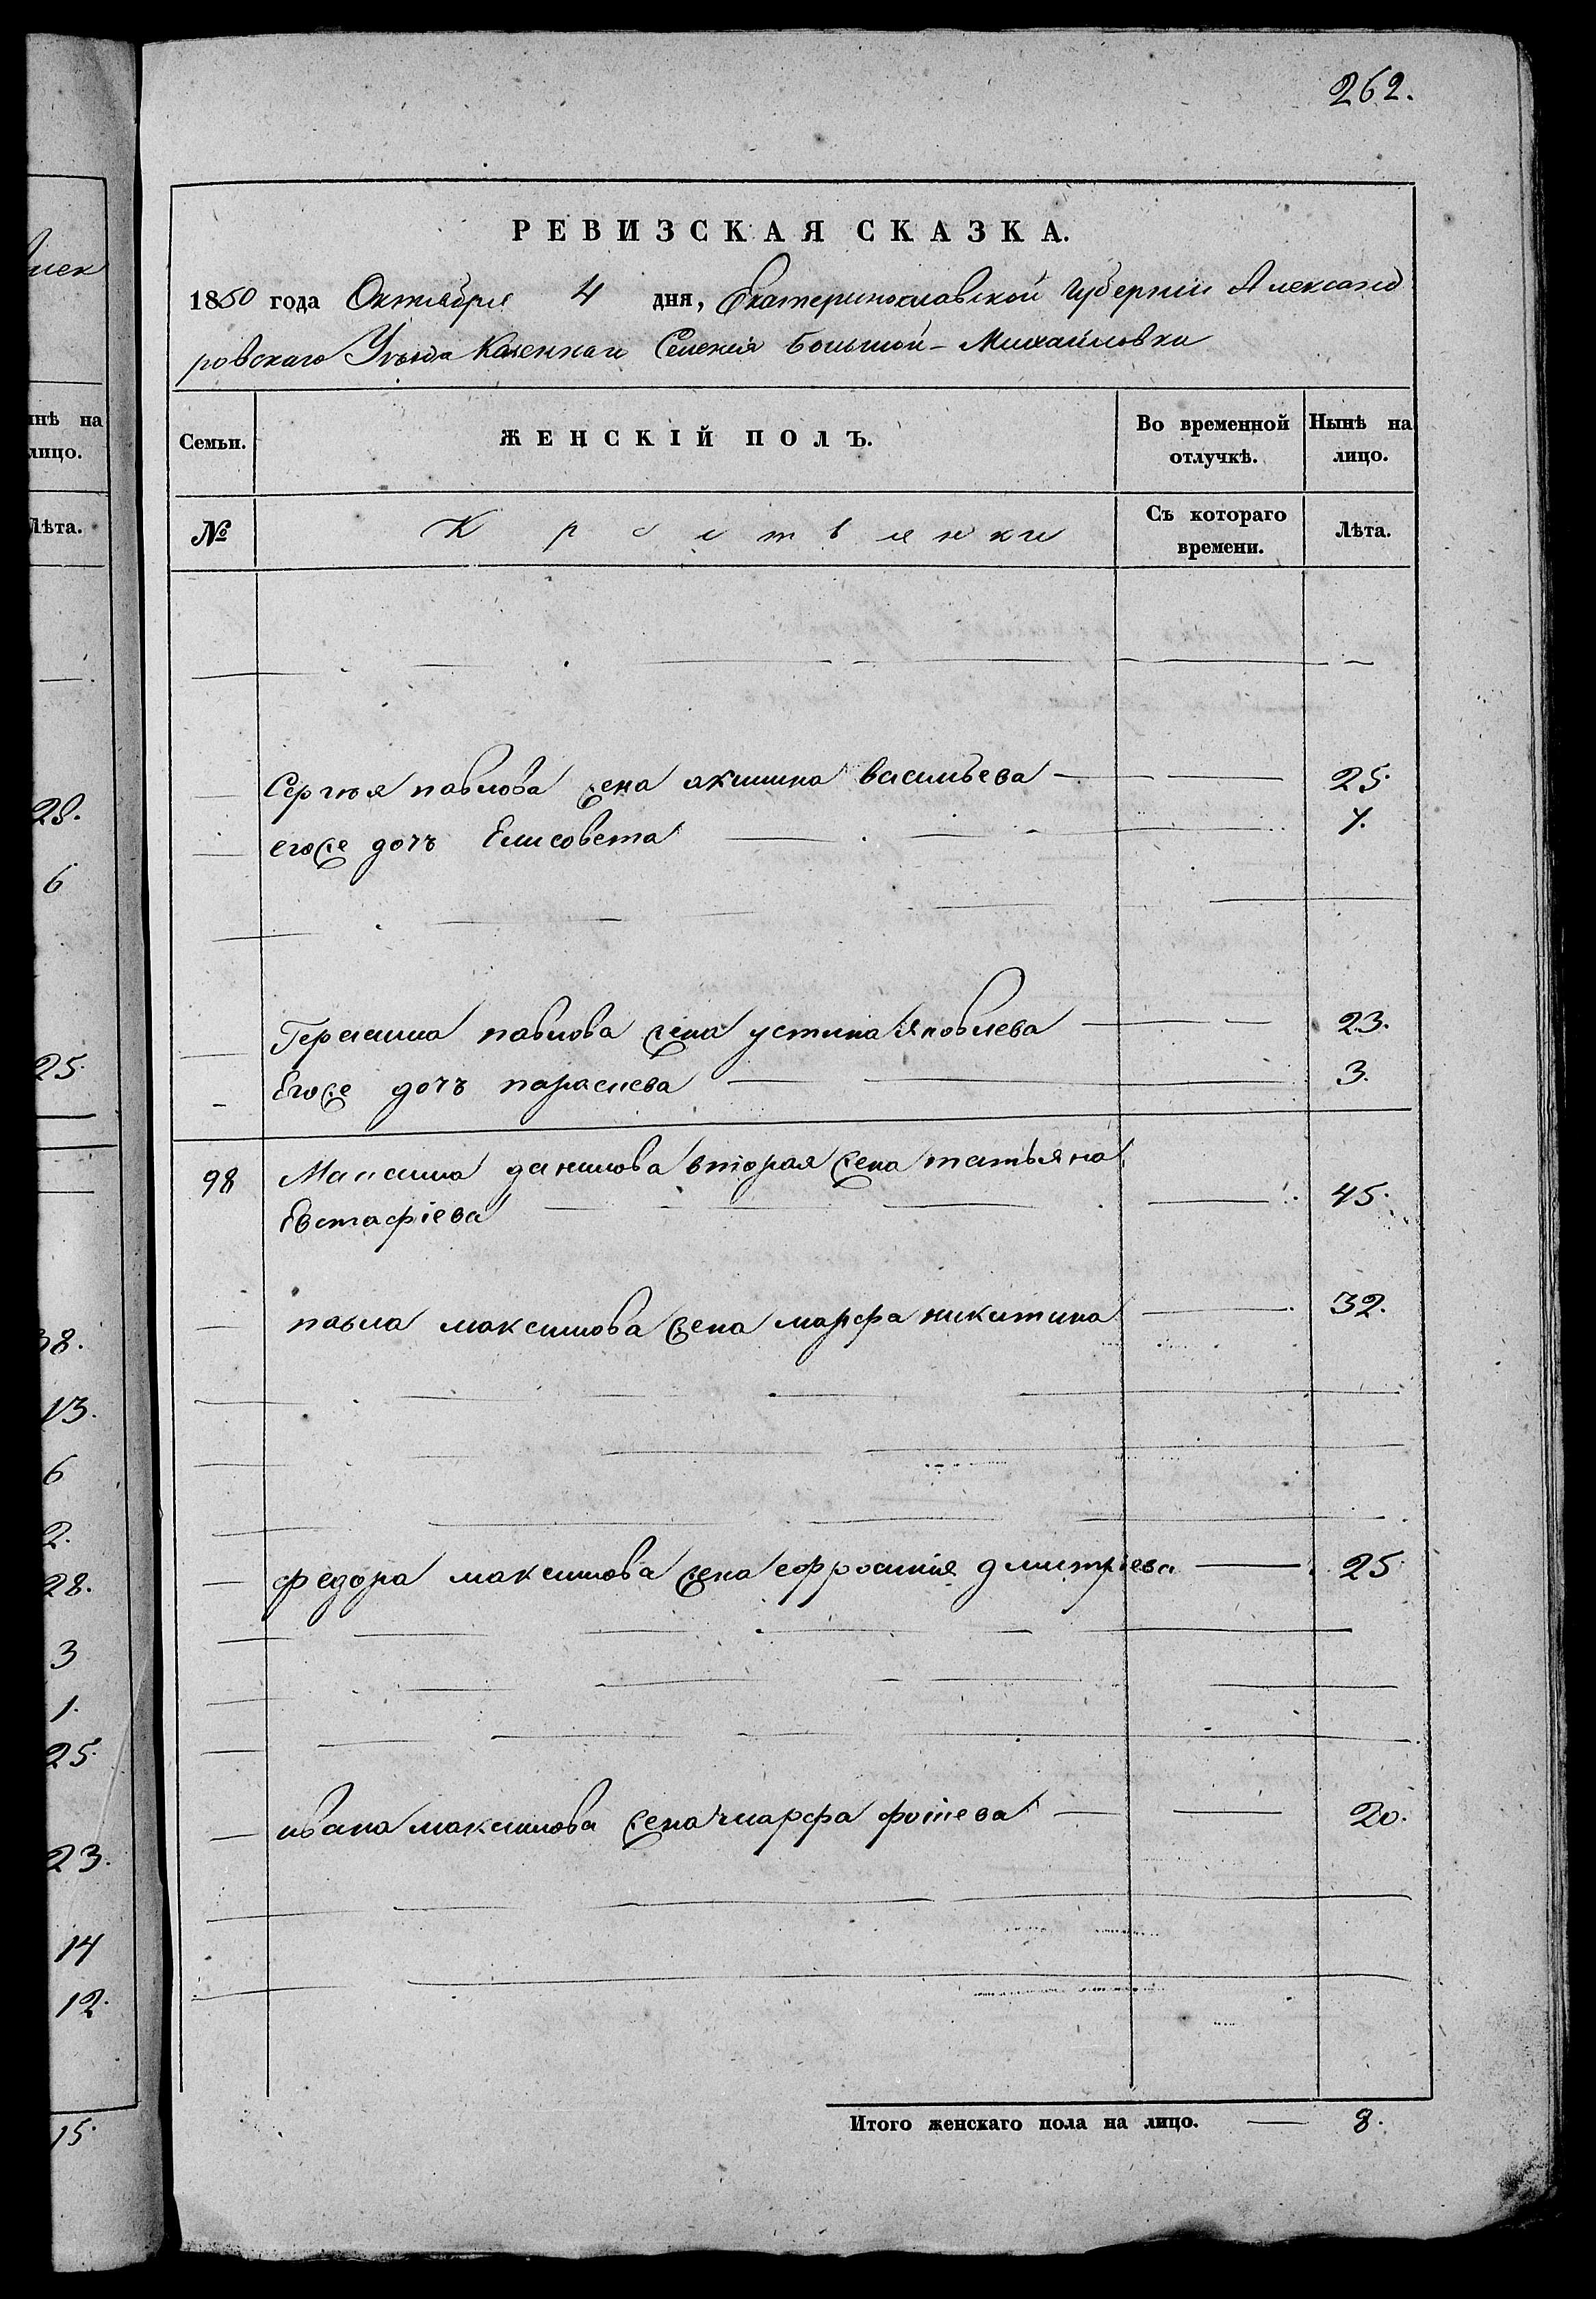 262.
РЕВИЗСКАЯ СКАЗКА.
1850 года Октября 4 дня, Екатеринославской Губернии Александ
ровскаго Уезда Казеннаго Селения Большой-Михайловки
Семьи. ЖЕНСКІЙ ПОЛЪ. Во временной отлучкѣ. Нынѣ на лицо.
№ Крестьянки Съ котораго времени. Лѣта.
Сергѣя павлова жена якимина васильева 25.
егоже дочъ Елисовета 7.
Герасима павлова жена устина Яковлева 23.
Егоже дочъ параскева 3.
98 Максима данилова вторая жена татьяна
Евстафіева 45.
павла максимова жена марфа никитина 32.
федора максимова жена ефросиния дмитріева 25
ивана максимова жена марфа фотіева 20.
Итого женскаго пола на лицо. 8.
нѣ на
лицо.
Лѣта.
28.
6
25.
38.
13.
6
2.
28.
3
1.
25.
23.
14
12.
15.